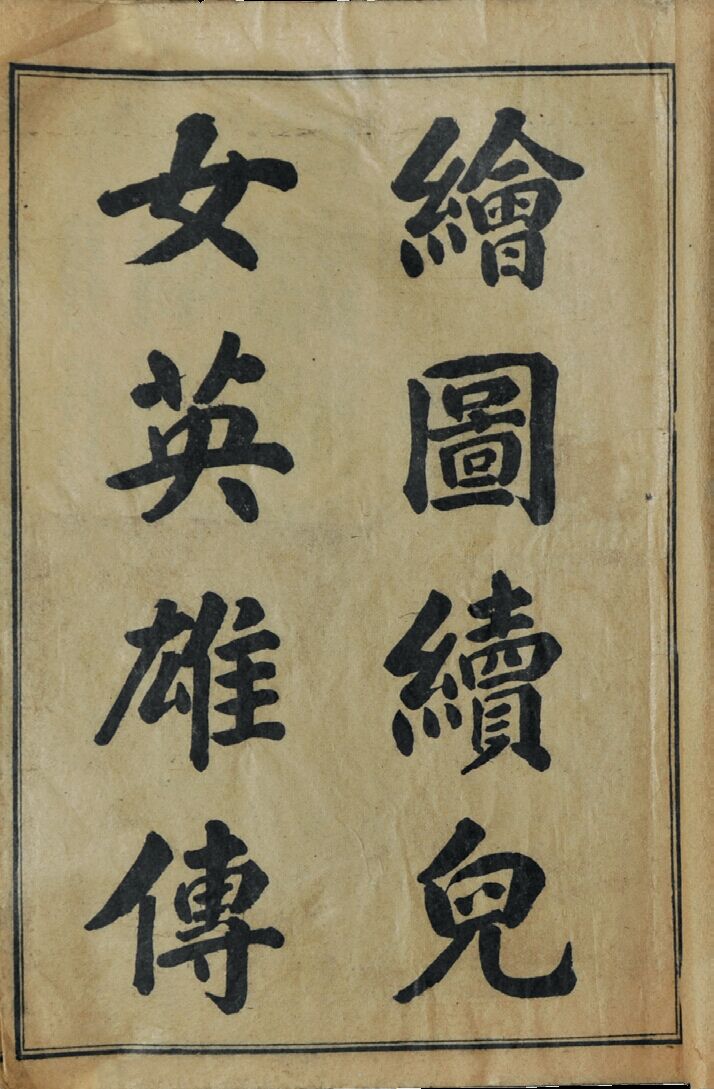 繪圖續兒
女英雄傳